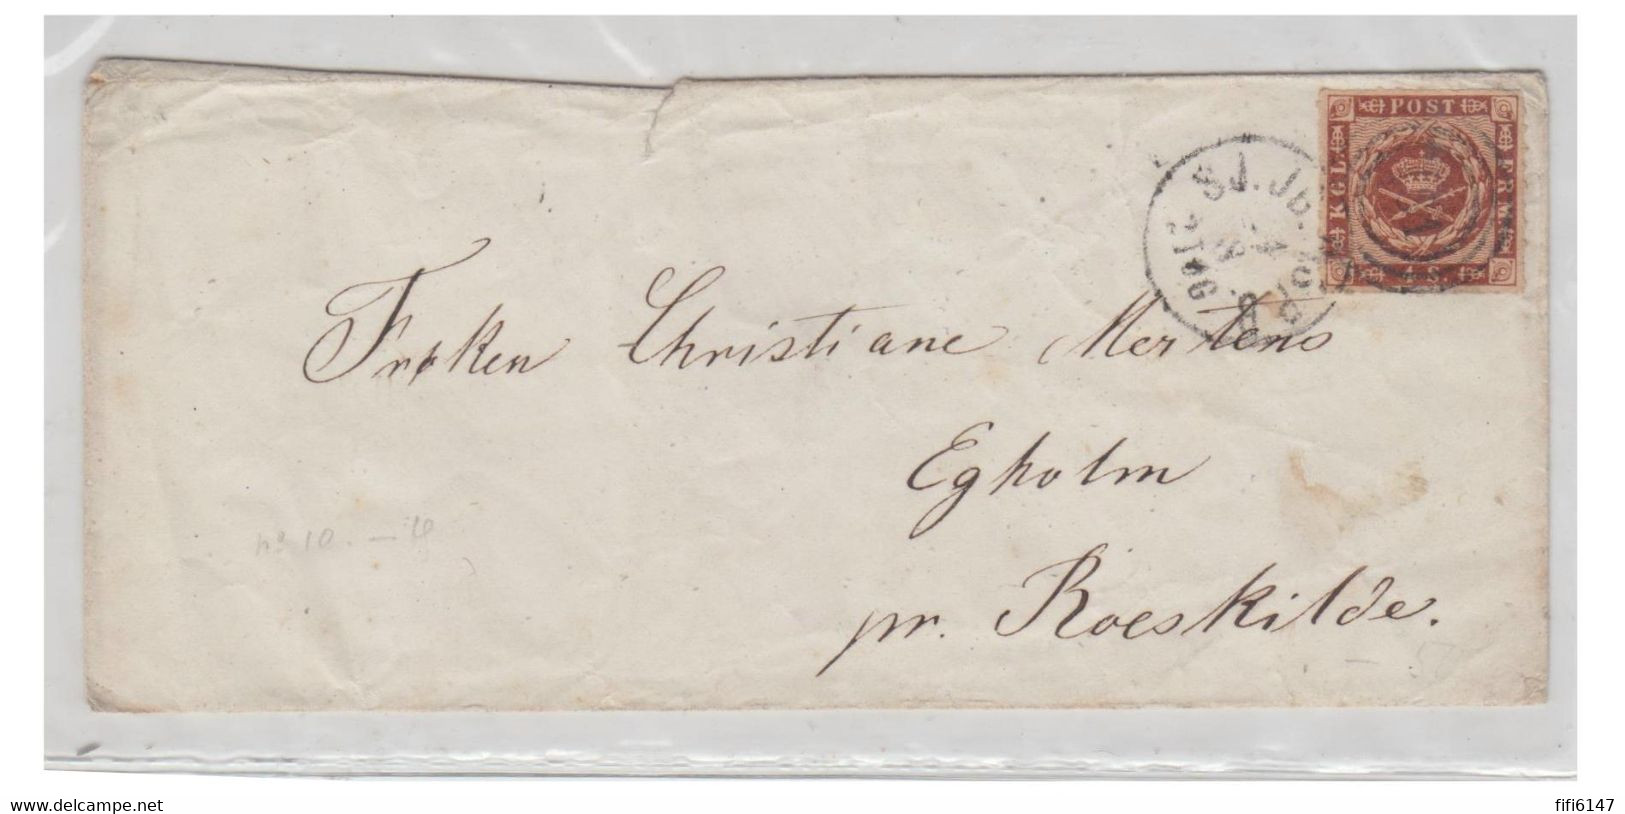 POST
KGL
FRM
4 S.
SJ. JB. POST
Frøken Christiane Mertens
Egholm
pr. Roeskilde.
no 10.
www.delcampe.net
fifi6147